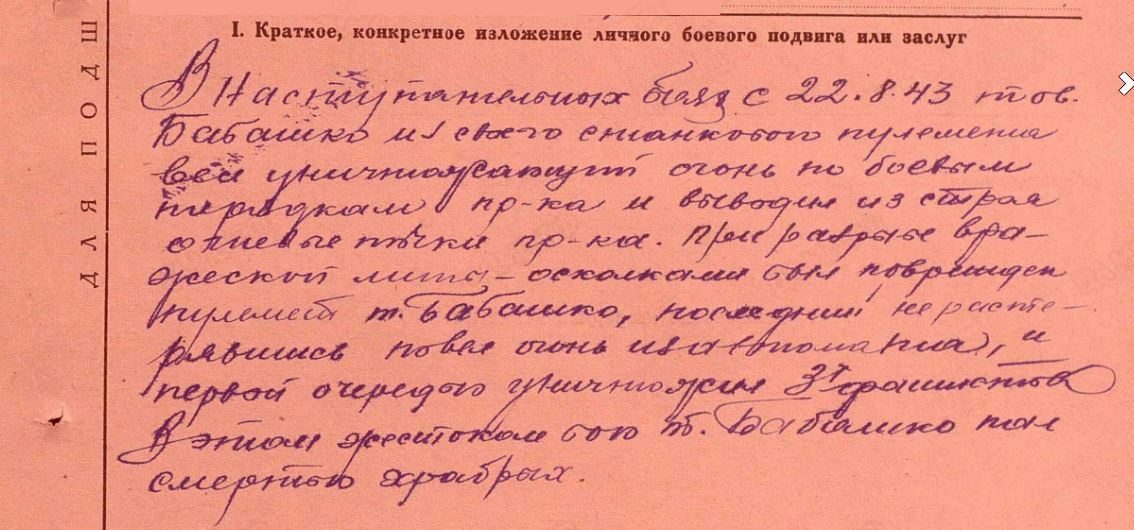 I. Краткое, конкретное изложение личного боевого подвига или заслуг
В наступательных боях с 22.8.43 тов.
Бабашко из своего станкового пулемета
вел уничтожающий огонь по боевым
порядкам пр-ка и выводил из строя
огневые точки пр-ка. При разрыве вра-
жеской мины - осколками был поврежден
пулемет т. Бабашко, последний не расте-
рявшись повел огонь из автомата, и
первой очередью уничтожил 3т фашистов
В этом жестоком бою т. Бабашко пал
смертью храбрых.
ДЛЯ ПОДШ